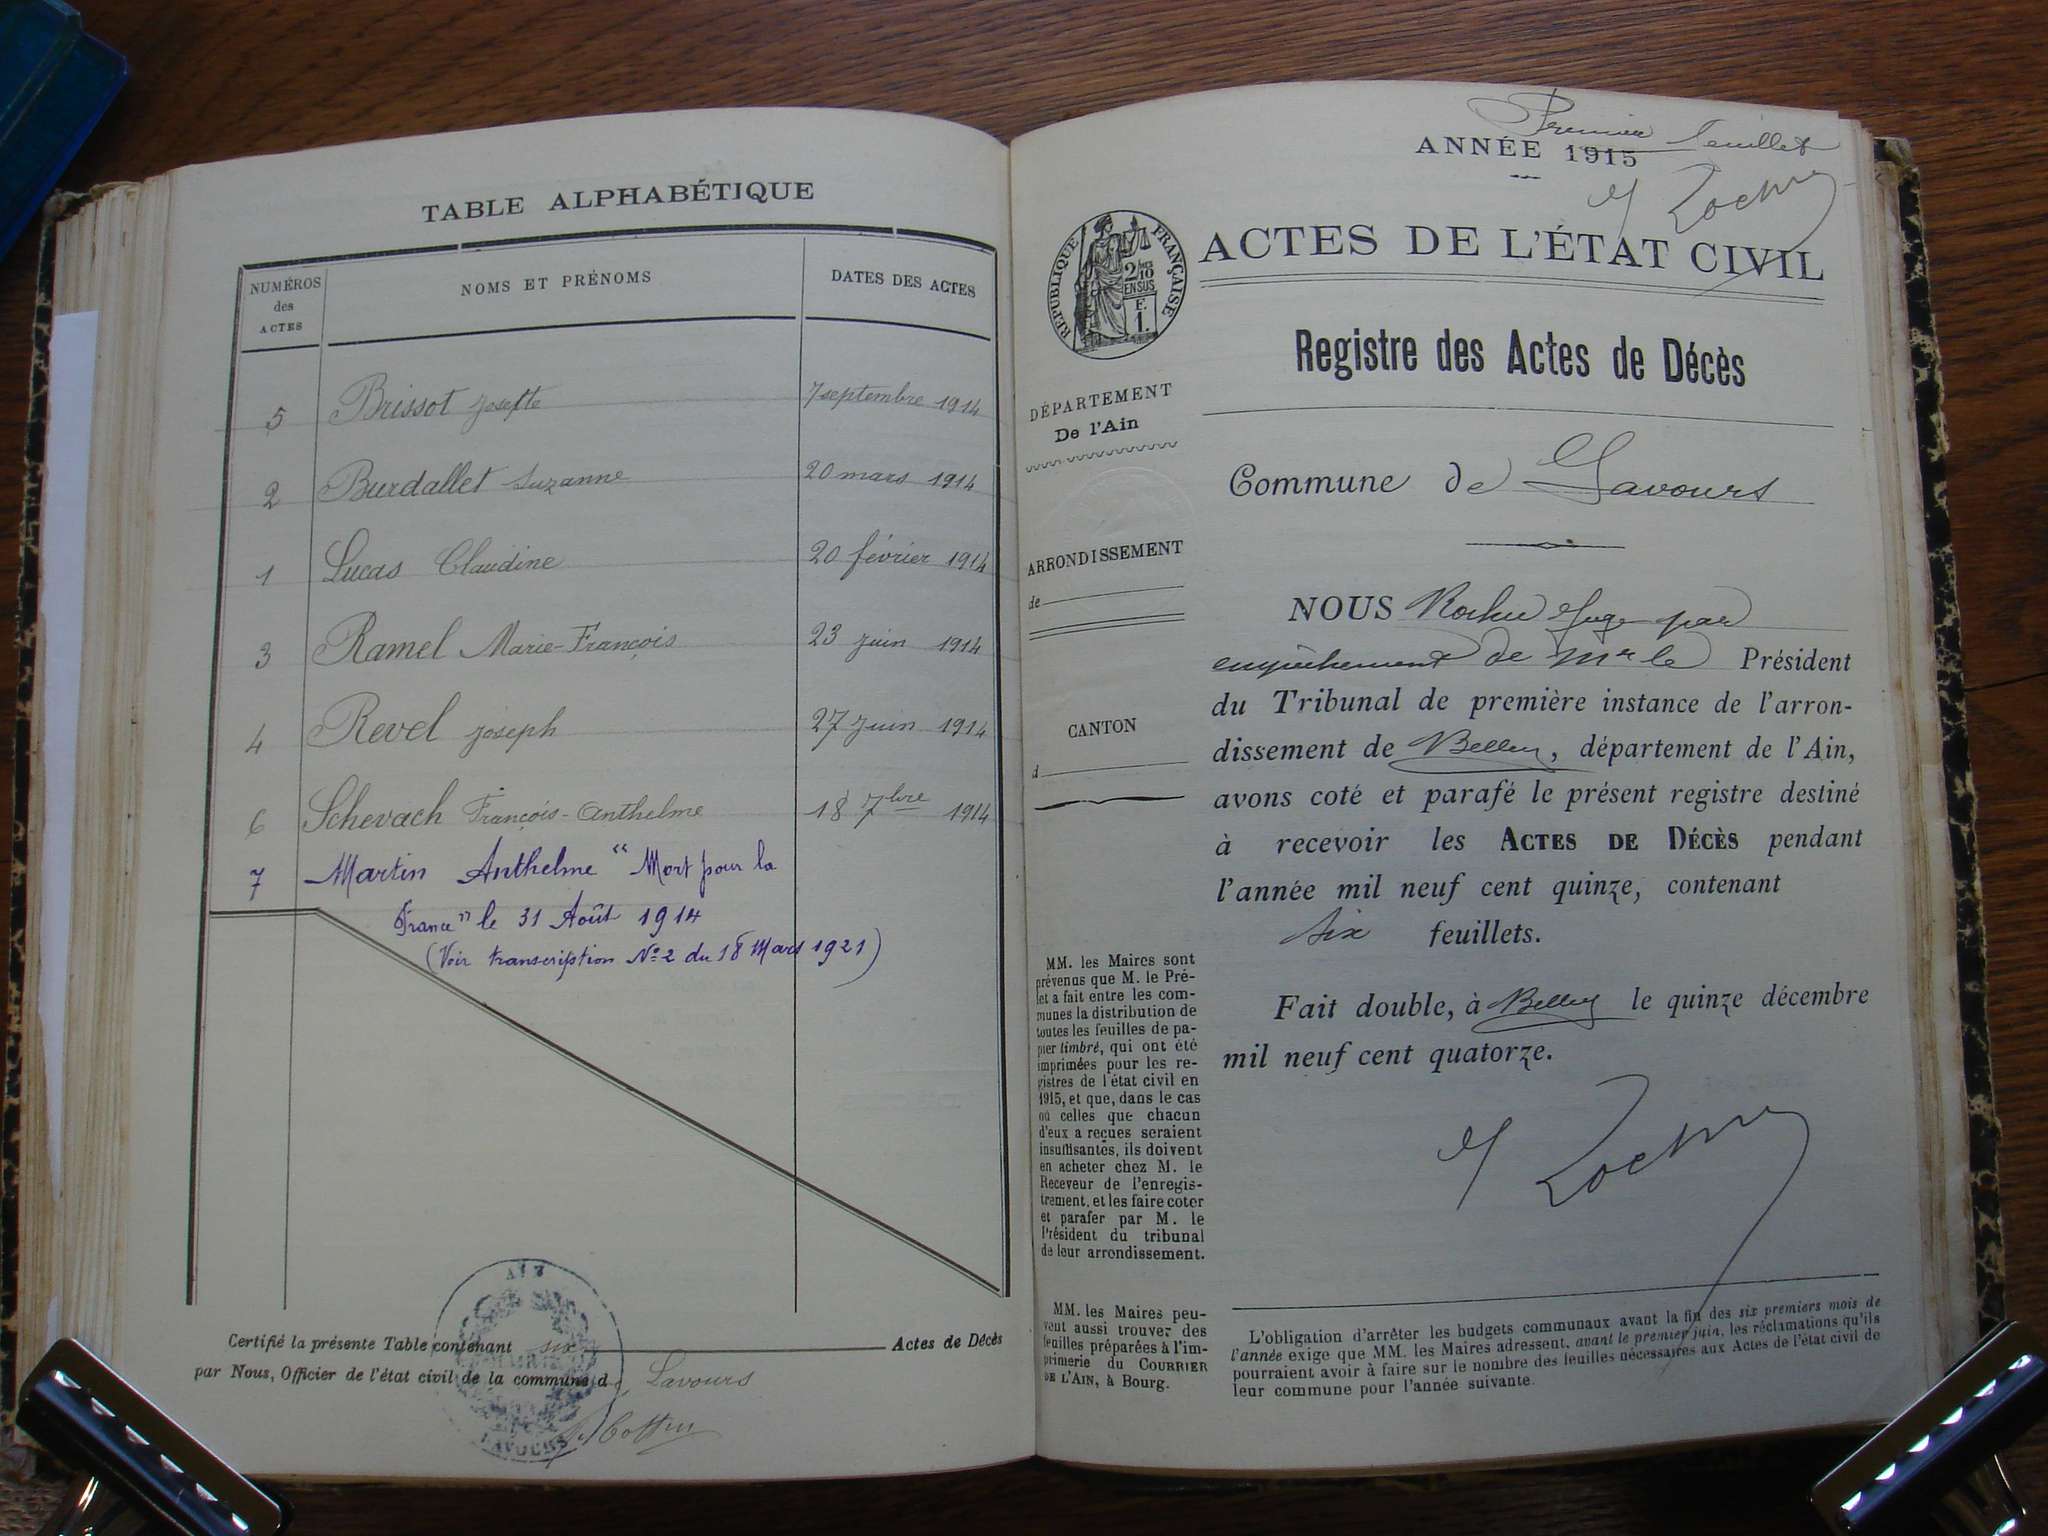 TABLE ALPHABÉTIQUE
NUMÉROS des ACTES
NOMS ET PRÉNOMS
DATES DES ACTES
5 Brissot Josephte 7 septembre 1914
2 Burdallet Suzanne 20 mars 1914
1 Lucas Claudine 20 février 1914
3 Ramel Marie-François 23 juin 1914
4 Revel Joseph 27 juin 1914
6 Schevach François-Anthelme 18 7bre 1914
7 Martin Anthelme "Mort pour la
France" le 31 Août 1914
(Voir transcription No 2 du 18 Mars 1921)
Certifié la présente Table contenant six Actes de Décès
par Nous, Officier de l'état civil de la commune d Lavours
Premier feuillet
ANNÉE 1915
ACTES DE L'ÉTAT CIVIL
RÉPUBLIQUE FRANÇAISE
2/10 EN SUS
F. 1.
Registre des Actes de Décès
DÉPARTEMENT
De l'Ain
Commune de Lavours
ARRONDISSEMENT
de
CANTON
d
NOUS Juge par
empêchement de Mr le Président
du Tribunal de première instance de l'arron-
dissement de Belley, département de l'Ain,
avons coté et parafé le présent registre destiné
à recevoir les ACTES DE DÉCÈS pendant
l'année mil neuf cent quinze, contenant
six feuillets.
Fait double, à Belley le quinze décembre
mil neuf cent quatorze.
MM. les Maires sont
prévenus que M. le Pré-
fet a fait entre les com-
munes la distribution de
toutes les feuilles de pa-
pier timbré, qui ont été
imprimées pour les re-
gistres de l'état civil en
1915, et que, dans le cas
où celles que chacun
d'eux a reçues seraient
insuffisantes, ils doivent
en acheter chez M. le
Receveur de l'enregis-
trement, et les faire coter
et parafer par M. le
Président du tribunal
de leur arrondissement.
MM. les Maires peu-
vent aussi trouver des
feuilles préparées à l'im-
primerie du COURRIER
DE L'AIN, à Bourg.
L'obligation d'arrêter les budgets communaux avant la fin des six premiers mois de
l'année exige que MM. les Maires adressent, avant le premier juin, les réclamations qu'ils
pourraient avoir à faire sur le nombre des feuilles nécessaires aux Actes de l'état civil de
leur commune pour l'année suivante.